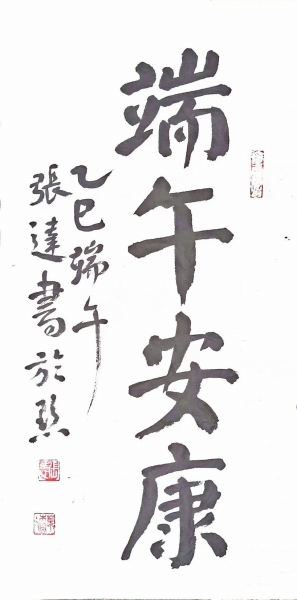 端午安康
乙巳端午
張達書於黔